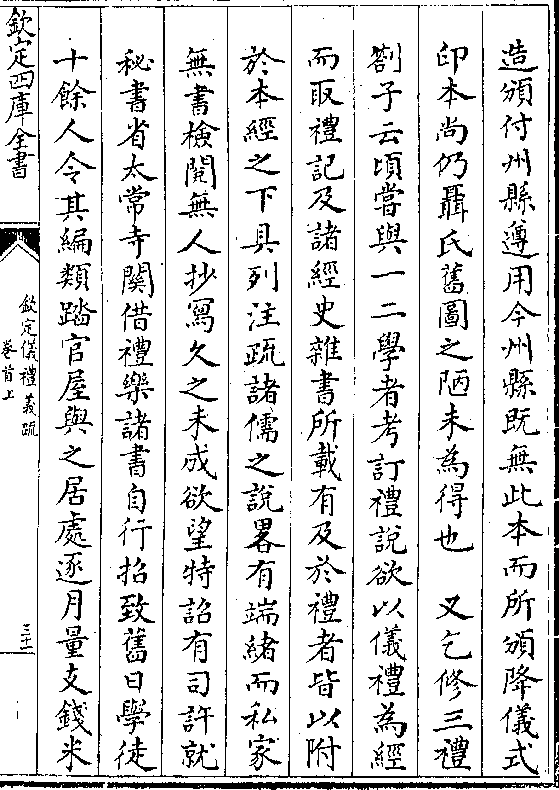 造頒付州縣遵用今州縣既無此本而所頒降儀式
印本尚仍聶氏舊圖之陋未為得也　又乞修三禮
劄子云頃嘗與一二學者考訂禮說欲以儀禮為經
而取禮記及諸經史雜書所載有及於禮者皆以附
於本經之下具列注疏諸儒之說畧有端緒而私家
無書檢閱無人抄寫久之未成欲望特詔有司許就
秘書省太常寺闗借禮樂諸書自行招致舊日學徒
十餘人令其編類踏官屋與之居處逐月量支錢米
欽定四庫全書
欽定儀禮義疏
卷首上
三十一